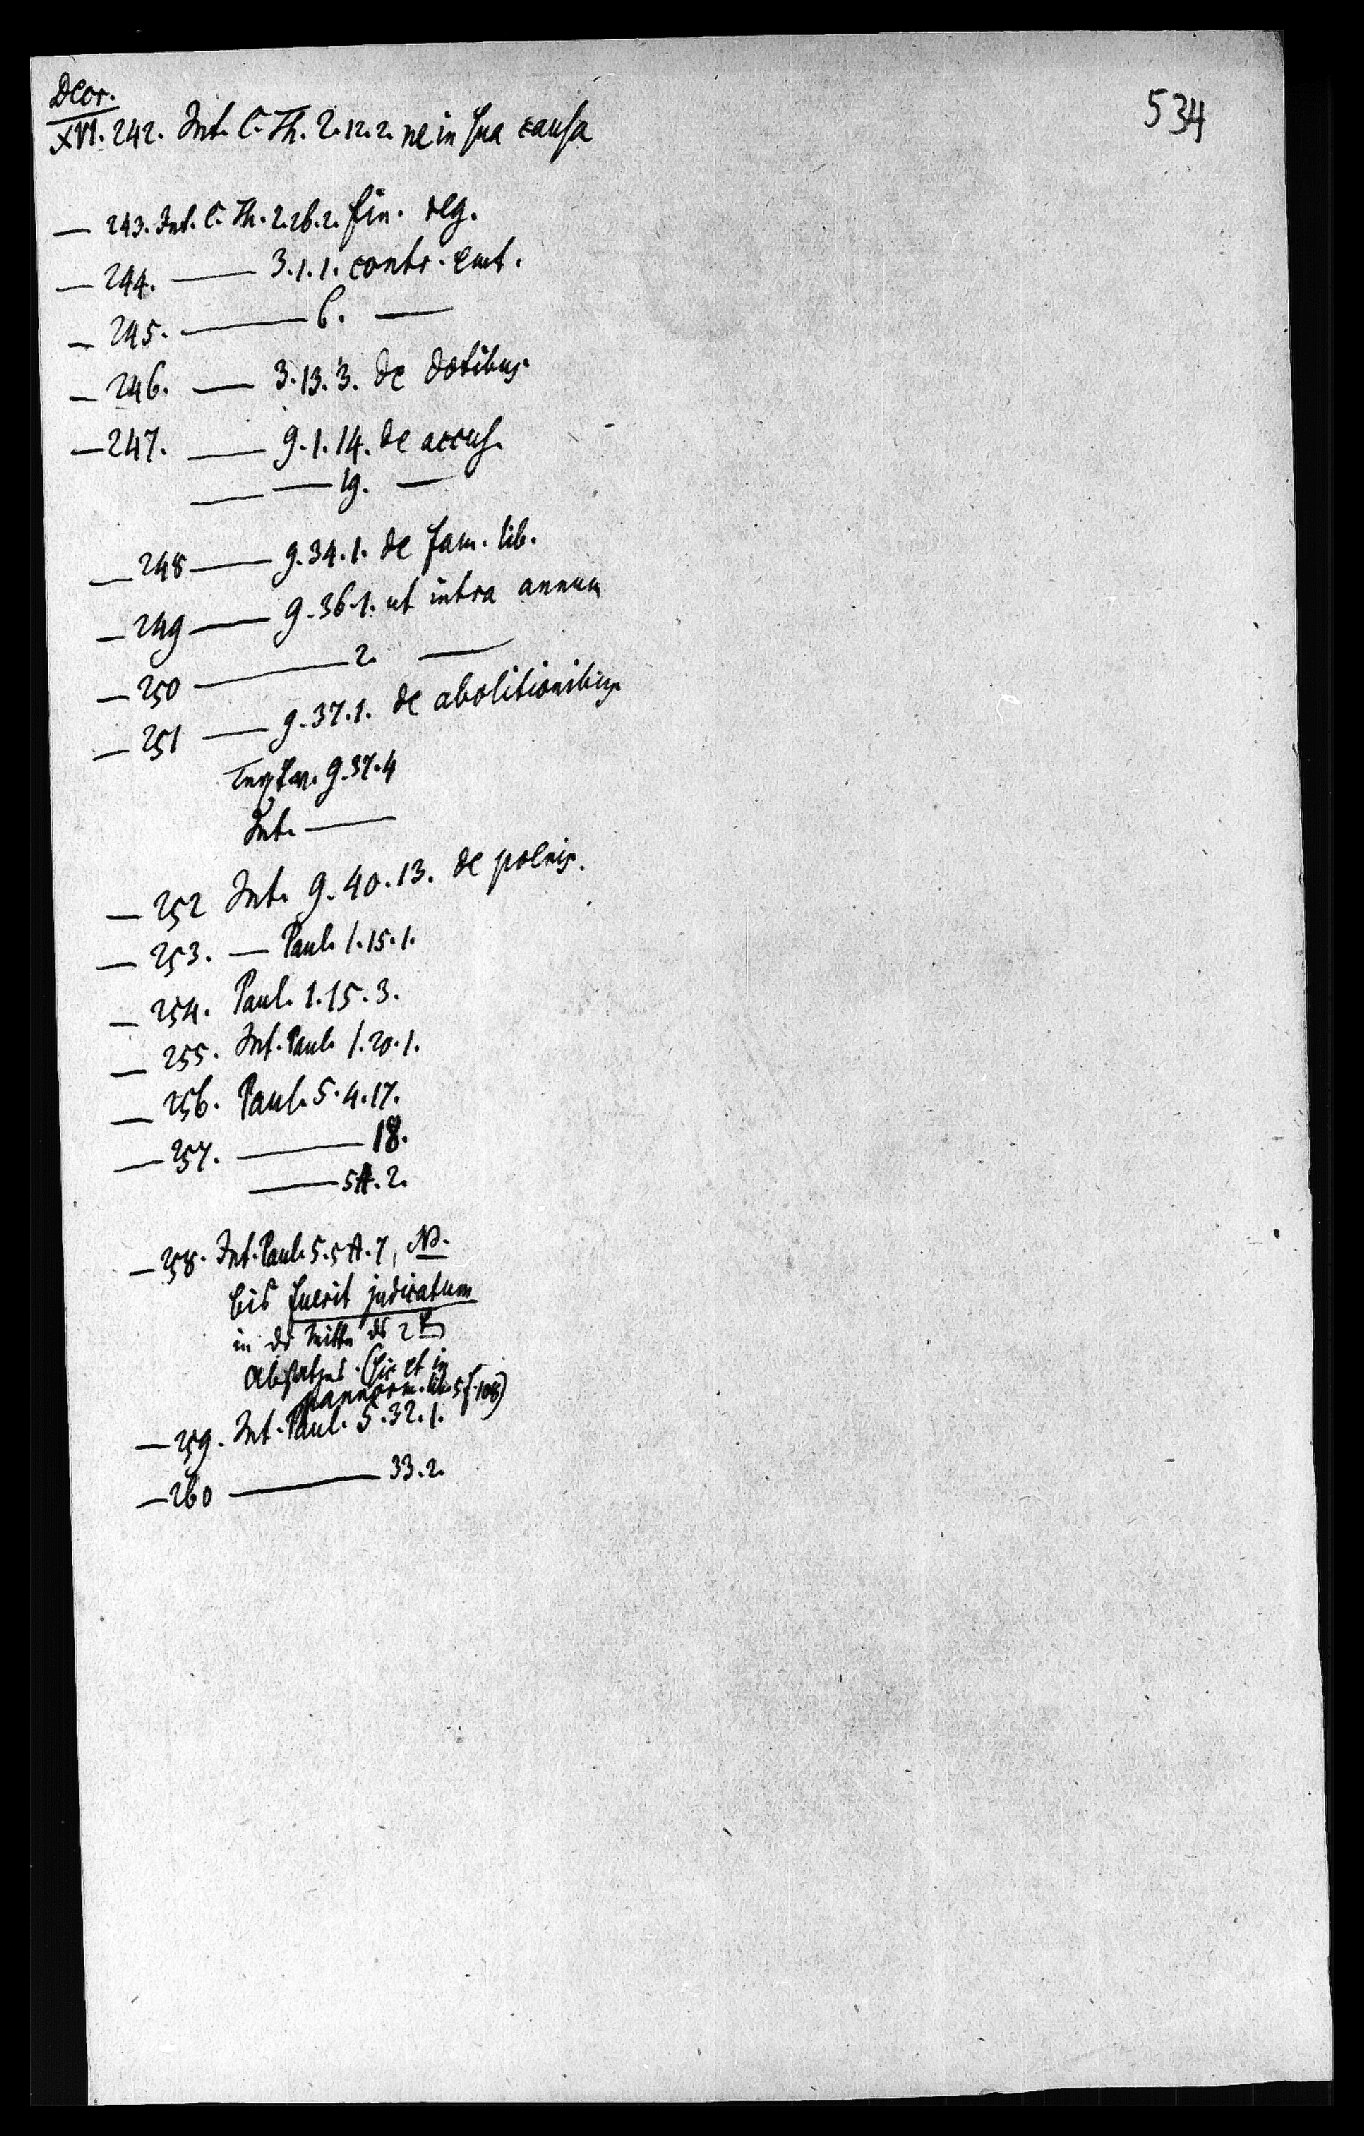 Decr.
534
XVI. 242. Int. C. Th. 2. 12. 2. ne in sua causa
— 243. Int. C. Th. 2. 26. 2. fin. reg.
— 244. — 3. 1. 1. contr. emt.
— 245. — 6. —
— 246. — 3. 13. 3. de dotibus.
— 247. — 9. 1. 14. de accus.
— — 19. —
— 248 — 9. 34. 1. de fam. lib.
— 249 — 9. 36. 1. ut intra annum
— 250 — 2. —
— 251 — 9. 37. 1. de abolitionibus
9. 37. 4
Int. —
— 252 Int. 9. 40. 13. de poenis.
— 253. — Paul. 1. 15. 1.
— 254. Paul. 1. 15. 3.
— 255. Int. Paul. 1. 20. 1.
— 256. Paul. 5. 4. 17.
— 257. — 18.
— 5A. 2.
— 258. Int. Paul. 5. 5A. 7, NB.
bis fuerit judicatum
in der Mitte des 2
Absatzes. (sic et in
pannorm. lib. 5 f. 108)
— 259. Int. Paul. 5. 32. 1.
— 260 — 33. 2.